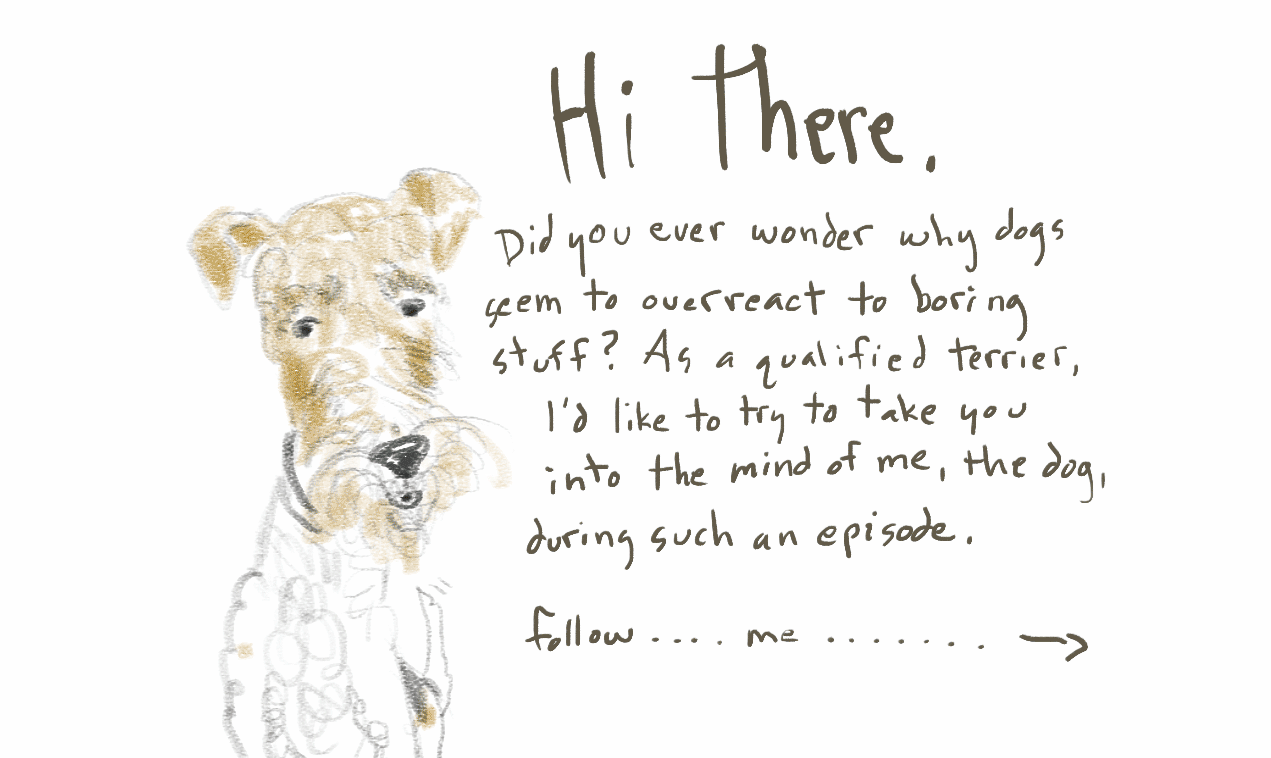 Hi There.
Did you ever wonder why dogs
seem to overreact to boring
stuff? As a qualified terrier,
I'd like to try to take you
into the mind of me, the dog,
during such an episode.
follow .... me ....... →